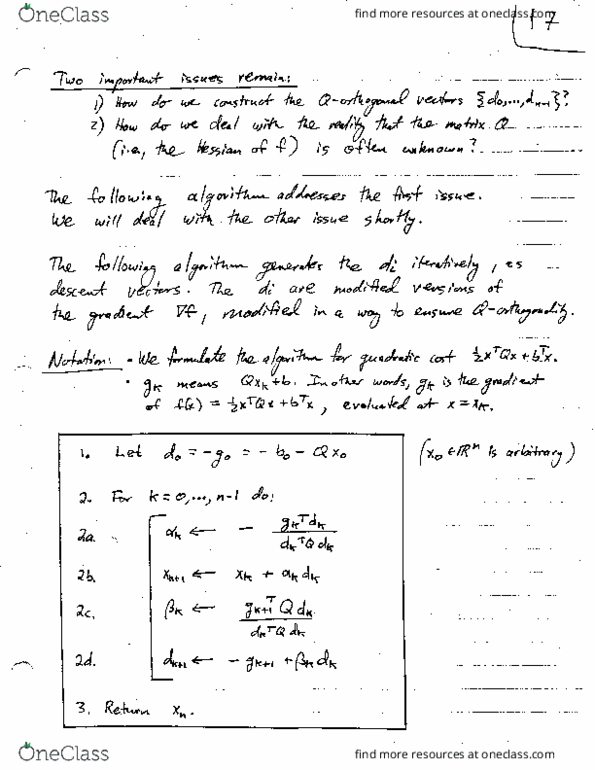 OneClass
find more resources at oneclass.com
17
Two important issues remain:
1) How do we construct the Q-orthogonal vectors {d0,...,dn-1}?
2) How do we deal with the reality that the matrix Q
(i.e., the Hessian of f) is often unknown?
The following algorithm addresses the first issue.
We will deal with the other issue shortly.
The following algorithm generates the di iteratively, as
descent vectors. The di are modified versions of
the gradient ∇f, modified in a way to ensure Q-orthogonality.
Notation: • We formulate the algorithm for quadratic cost ½xᵀQx + bᵀx.
• gk means Qxk + b. In other words, gk is the gradient
of f(x) = ½xᵀQx + bᵀx, evaluated at x = xk.
1. Let d0 = -g0 = -b0 - Qx0 (x0 ∈ ℝⁿ is arbitrary)
2. For k = 0,...,n-1 do:
2a. αk ← - gkᵀdk / dkᵀQdk
2b. xk+1 ← xk + αkdk
2c. βk ← gk+1ᵀQdk / dkᵀQdk
2d. dk+1 ← -gk+1 + βkdk
3. Return xn.
OneClass
find more resources at oneclass.com